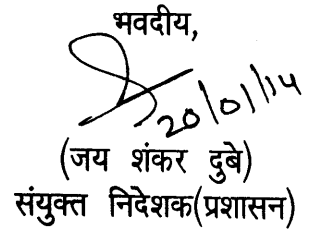 भवदीय,
20/01/14
(जय शंकर दुबे)
संयुक्त निदेशक(प्रशासन)